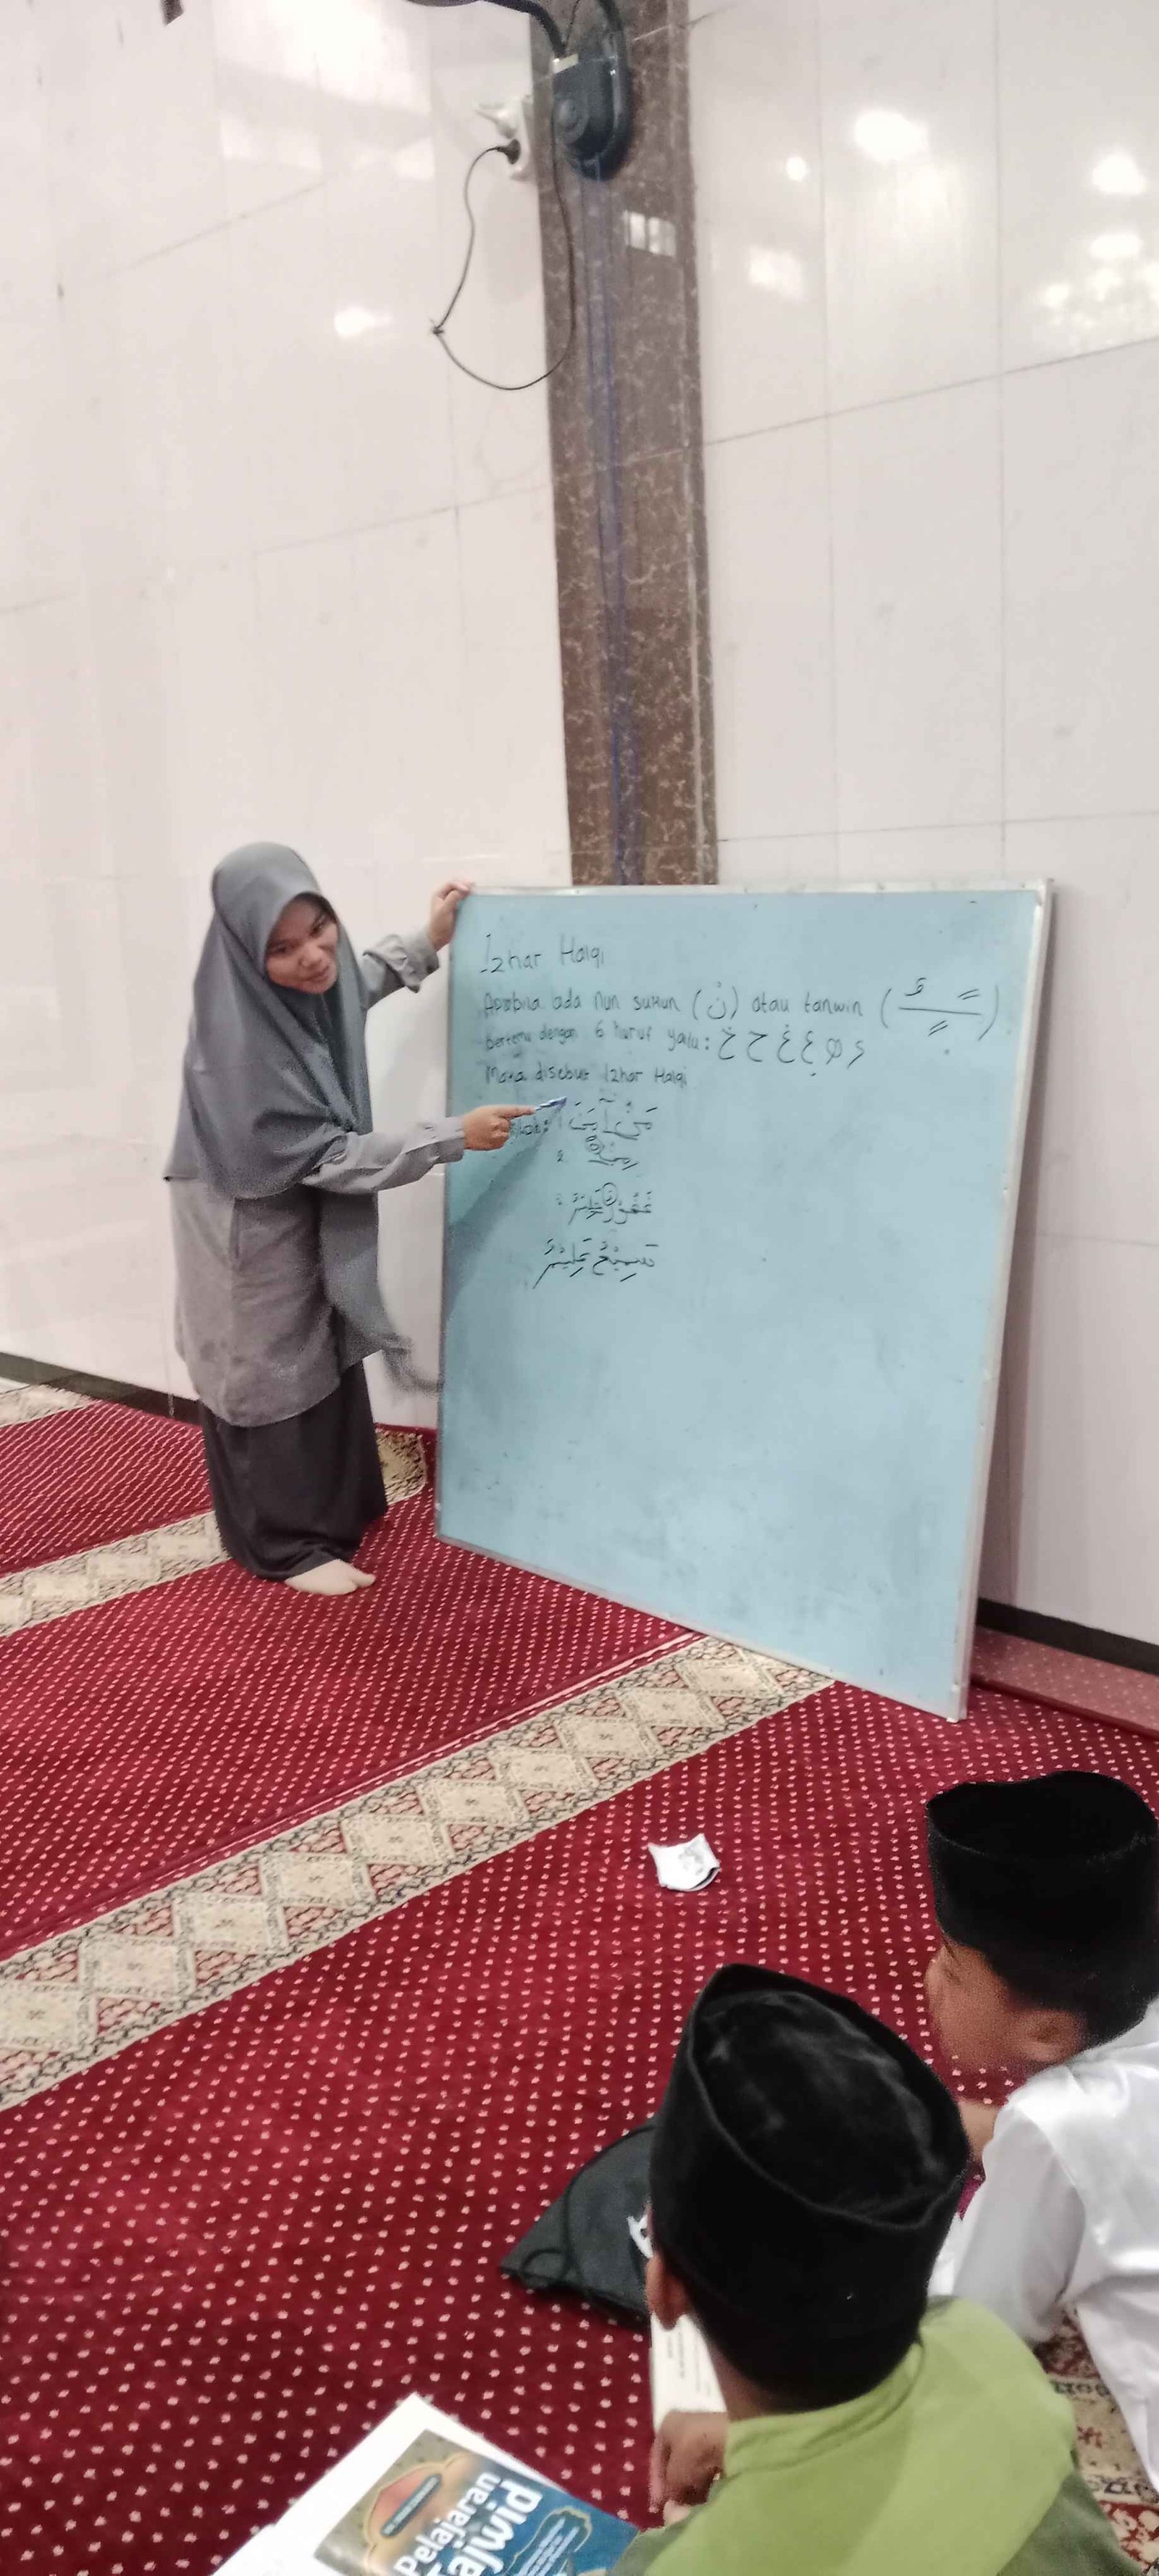 Izhar Halqi
Apabila ada Nun sukun (نْ) atau tanwin ( ـٌ ـً ـٍ )
bertemu dengan 6 huruf yaitu: ء ه ع غ ح خ
Maka disebut Izhar Halqi
مَنْ آمَنَ
2.
غَفُوْرٌ
سَمِيْعٌ عَلِيْمٌ
Pelajaran
Tajwid